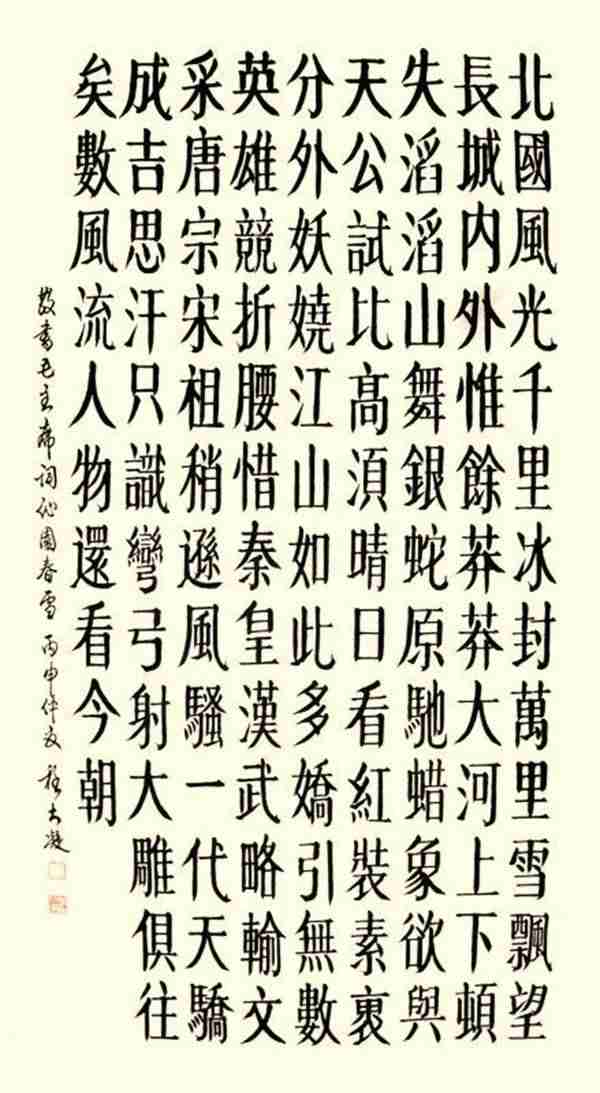 北國風光千里冰封萬里雪飄望
長城內外惟餘莽莽大河上下頓
失滔滔山舞銀蛇原馳蜡象欲與
天公試比髙湏晴日看紅裝素裹
分外妖嬈江山如此多嬌引無數
英雄競折腰惜秦皇漢武略輸文
采唐宗宋祖稍遜風騷一代天驕
成吉思汗只識彎弓射大雕俱往
矣數風流人物還看今朝
敬書毛主席詞沁園春雪 丙申仲夏